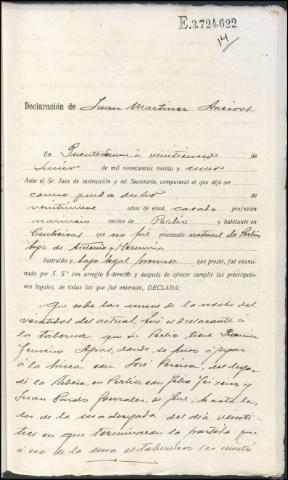 E.3.724.622
14
Declaración de Juan Martinez
En Puentedeume a veinticinco de
Junio de mil novecientos treinta y
Ante el Sr. Juez de instrucción y mi Secretario, comparece el que dijo ser
como queda dicho de
años de edad, casado profesión
marinero vecino de Perlío y habitante en
que no fué procesado natural de Perlío
hijo de Antonio y
Instruído y bajo legal promesa que prestó, fué exami-
nado por S. S.ª con arreglo a derecho y después de ofrecer cumplir las prescripcio-
nes legales, de todas las que fué enterado, DECLARA:
Que sobre las nueve de la noche del
veintidos del actual, fué el declarante a
la taberna que en Perlío tiene Ramiro
donde se puso a jugar
a la brisca con José Pereira, del lugar
de la Ribeira, en Perlío, con Felix Teixeiro y
Juan Pardo Gonzalez, el que, hasta las
dos de la madrugada del dia veinti-
tres en que terminaron la partida, que
a eso de la una el tabernero les